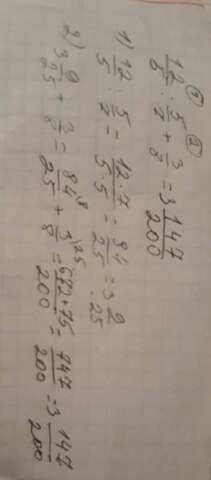 ① ②
12/5 : 5/7 + 3/8 = 3 147/200
1) 12/5 : 5/7 = 12·7/5·5 = 84/25 = 3 9/25
2) 3 9/25 + 3/8 = 84\8/25 + 3\25/8 = 672+75/200 = 747/200 = 3 147/200